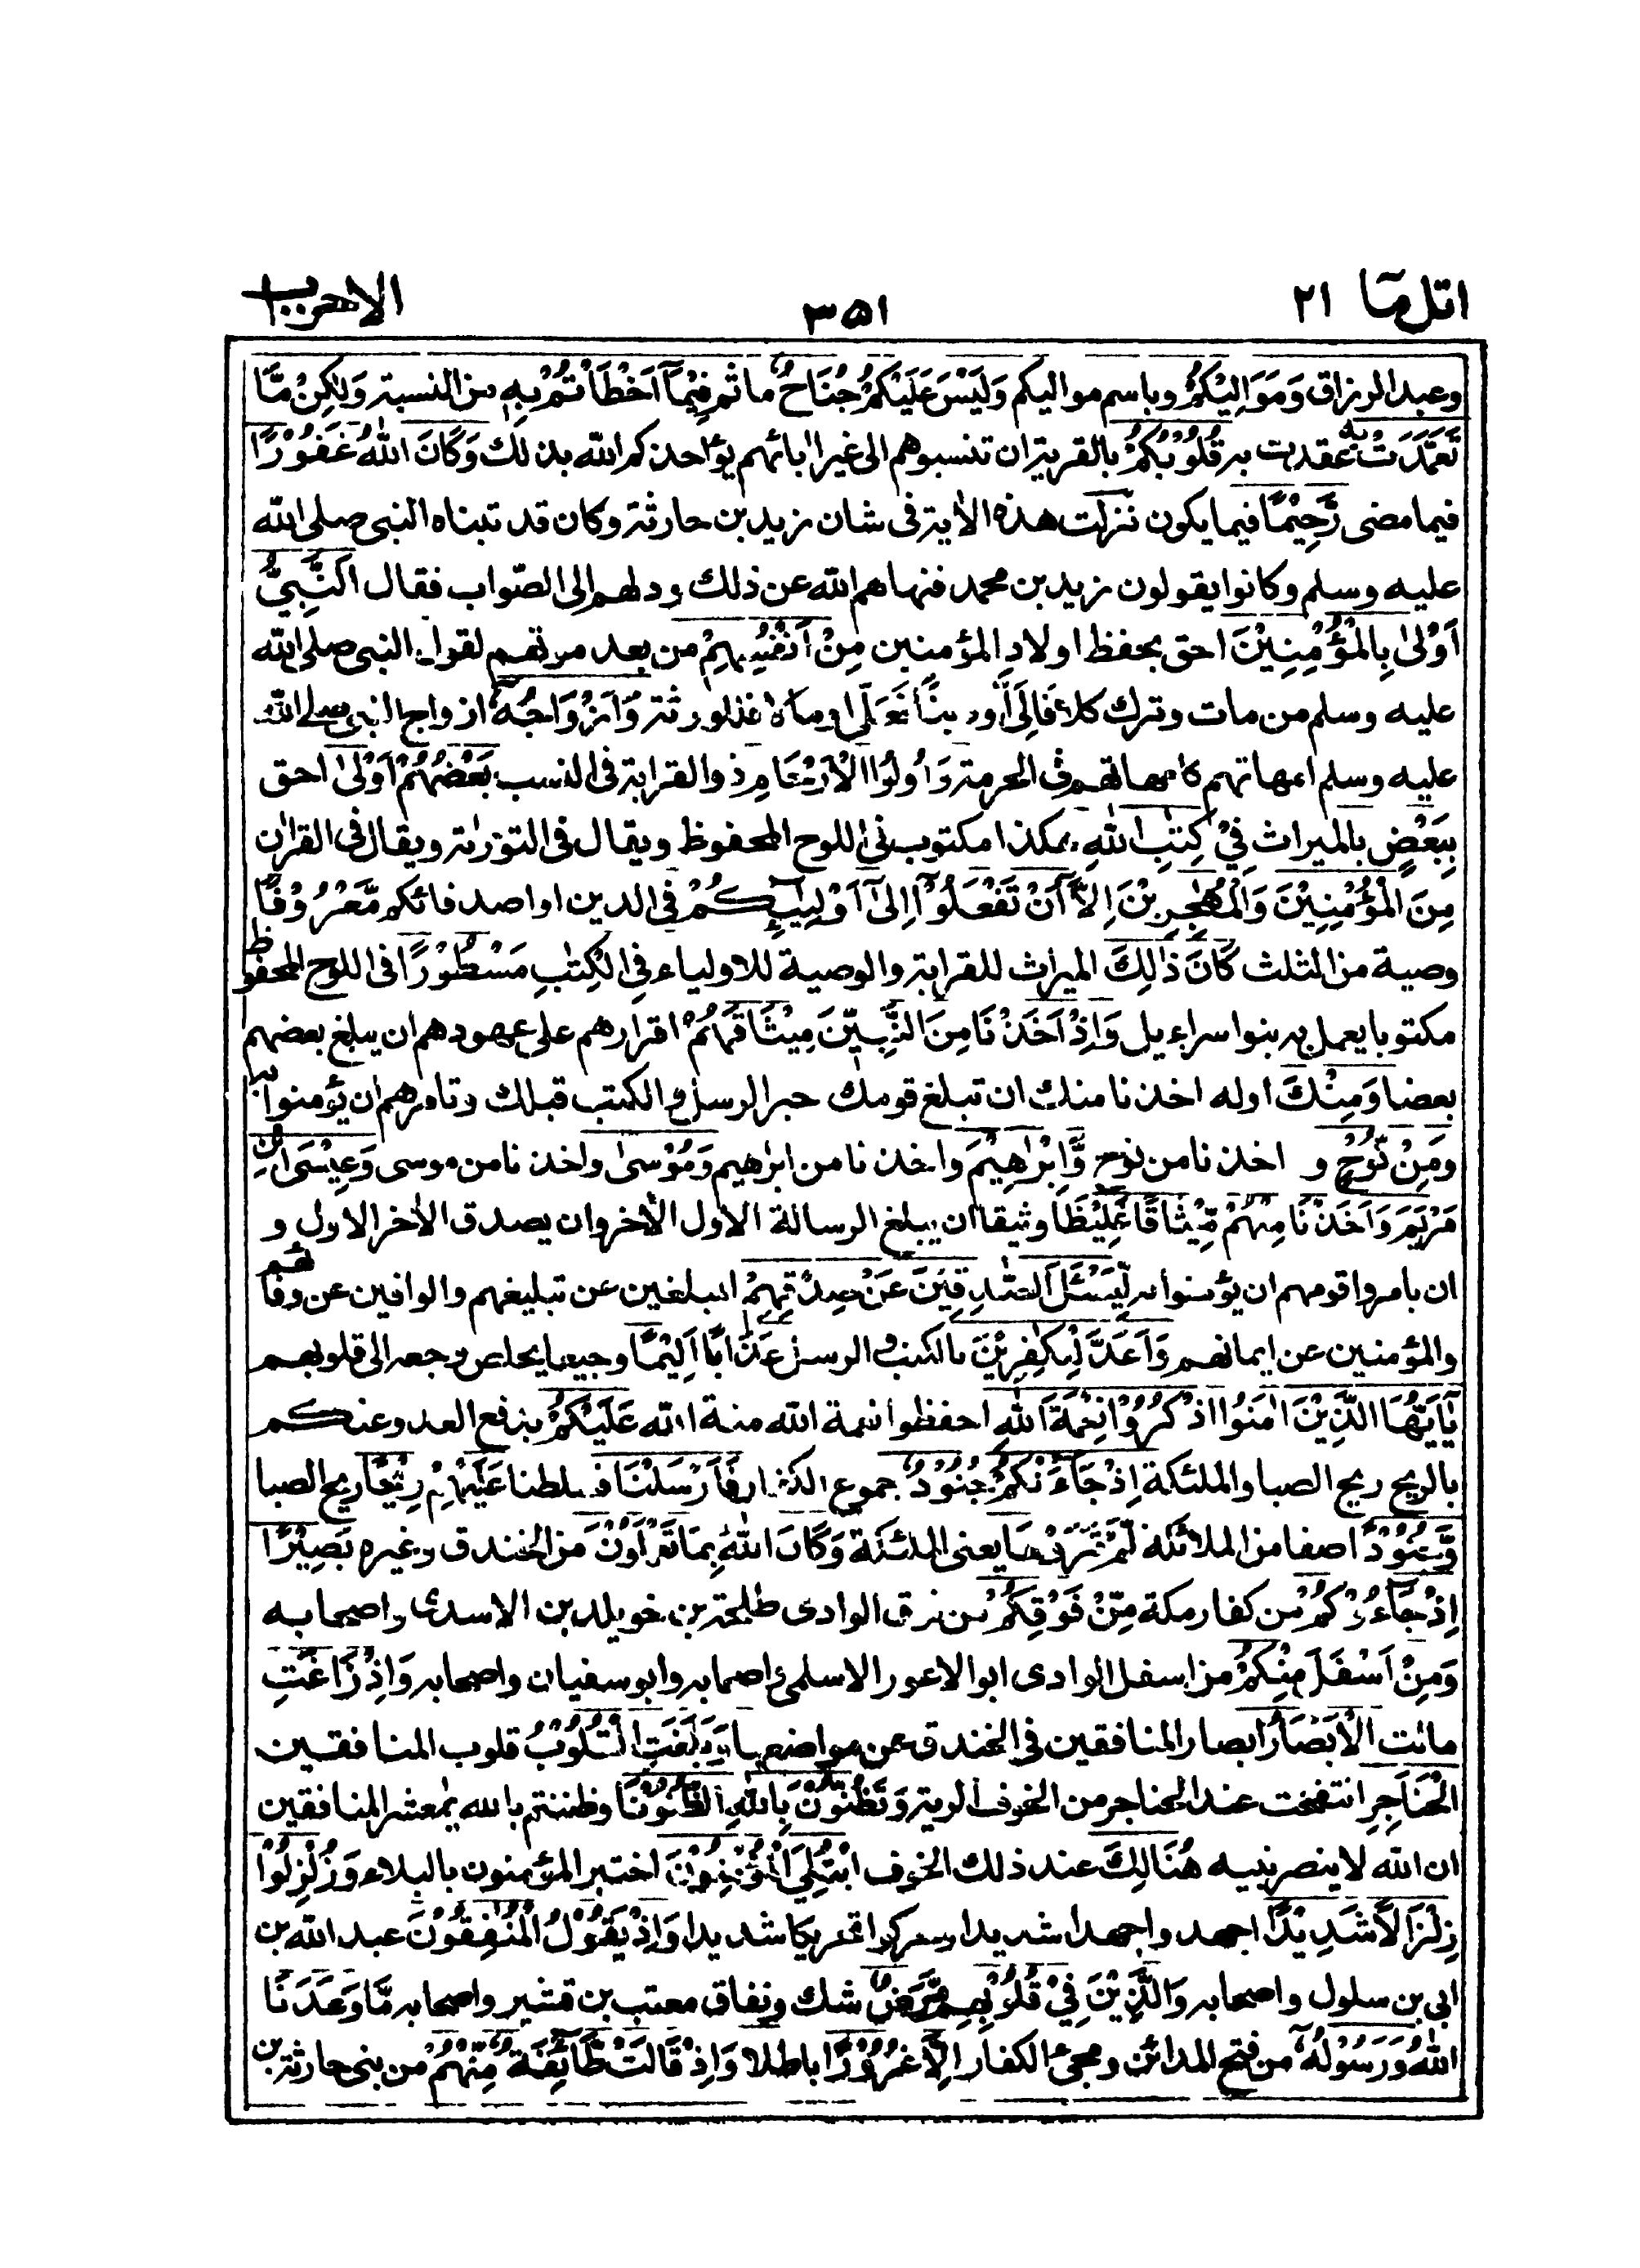 اتل مآ ٢١ ٣٥١ الاحزاب
وعبد الرزاق وَمَوَالِيْكُمْ وباسم مواليكم وَلَيْسَ عَلَيْكُمْ جُنَاحٌ ماثم فِيْمَآ اَخْطَاْتُمْ بِهٖ من النسبة وَلٰكِنْ مَّا
تَعَمَّدَتْ عقدت به قُلُوْبُكُمْ بالقرية ان تنسبوهم الى غير اٰبائهم يؤاخذكم الله بذلك وَكَانَ اللّٰهُ غَفُوْرًا
فيما مضى رَّحِيْمًا فيما يكون نزلت هذه الاٰية فى شان زيد بن حارثة وكان قد تبناه النبى صلى الله
عليه وسلم وكانوا يقولون زيد بن محمد فنهاهم الله عن ذلك ودلهم الى الصّواب فقال اَلنَّبِيُّ
اَوْلٰى بِالْمُؤْمِنِيْنَ احق بحفظ اولاد المؤمنين مِنْ اَنْفُسِهِمْ من بعد موتهم لقول النبى صلى الله
عليه وسلم من مات وترك كلا فَالىّ او دينًا فعلىّ او مالا فلورثته وَاَزْوَاجُهٗٓ ازواج النبى صلى الله
عليه وسلم امهاتهم كامهاتهم فى الحرمة وَاُولُوا الْاَرْحَامِ ذو القرابة فى النسب بَعْضُهُمْ اَوْلٰى احق
بِبَعْضٍ بالميراث فِيْ كِتٰبِ اللّٰهِ هكذا مكتوب فى اللوح المحفوظ ويقال فى التورٰىة ويقال فى القراٰن
مِنَ الْمُؤْمِنِيْنَ وَالْمُهٰجِرِيْنَ اِلَّآ اَنْ تَفْعَلُوْٓا اِلٰٓى اَوْلِيٰٓئِكُمْ فى الدين او اصدقائكم مَّعْرُوْفًا
وصية من الثلث كَانَ ذٰلِكَ الميراث للقرابة والوصية للاولياء فِي الْكِتٰبِ مَسْطُوْرًا فى اللوح المحفوظ
مكتوبا يعمل به بنوا سراءيل وَاِذْ اَخَذْنَا مِنَ النَّبِيّٖنَ مِيْثَاقَهُمْ اقرارهم على عهودهم ان يبلغ بعضهم
بعضا وَمِنْكَ اوله اخذنا منك ان تبلغ قومك خبر الرسل والكتب قبلك وتامرهم ان يؤمنوا به
وَمِنْ نُّوْحٍ و اخذنا من نوح وَّاِبْرٰهِيْمَ واخذنا من ابرٰهيم وَمُوْسٰى واخذنا من موسى وَعِيْسَى ابْنِ
مَرْيَمَ وَاَخَذْنَا مِنْهُمْ مِّيْثَاقًا غَلِيْظًا وثيقا ان يبلغ الرسالة الاول الاٰخر وان يصدق الاٰخر الاول و
ان يامروا قومهم ان يؤمنوا به لِّيَسْئَلَ الصّٰدِقِيْنَ عَنْ صِدْقِهِمْ المبلغين عن تبليغهم والوافين عن وفائهم
والمؤمنين عن ايمانهم وَاَعَدَّ لِلْكٰفِرِيْنَ بالكتب والرسل عَذَابًا اَلِيْمًا وجيعا يخلص وجعه الى قلوبهم
يٰٓاَيُّهَا الَّذِيْنَ اٰمَنُوا اذْكُرُوْا نِعْمَةَ اللّٰهِ احفظوا نعمة الله منة الله عَلَيْكُمْ بدفع العدو عنكم
بالريح ريح الصبا والملئكة اِذْ جَآءَتْكُمْ جُنُوْدٌ جموع الكفار فَاَرْسَلْنَا فسلطنا عَلَيْهِمْ رِيْحًا ريح الصبا
وَّجُنُوْدًا صفا من الملائكة لَّمْ تَرَوْهَا يعنى الملئكة وَكَانَ اللّٰهُ بِمَا تَعْمَلُوْنَ من الخندق وغيره بَصِيْرًا
اِذْ جَآءُوْكُمْ من كفار مكة مِّنْ فَوْقِكُمْ من فوق الوادى طلحة بن خويلد بن الاسدى واصحابه
وَمِنْ اَسْفَلَ مِنْكُمْ من اسفل الوادى ابو الاعور الاسلمى واصحابه وابو سفيان واصحابه وَاِذْ زَاغَتِ
مالت الْاَبْصَارُ ابصار المنافقين فى الخندق عن مواضعها وَبَلَغَتِ الْقُلُوْبُ قلوب المنافقين
الْحَنَاجِرَ انتفخت عند الحناجر من الخوف الرية وَتَظُنُّوْنَ بِاللّٰهِ الظُّنُوْنَا وظننتم بالله يٰمعشر المنافقين
ان الله لا ينصر نبيه هُنَالِكَ عند ذلك الخوف ابْتُلِيَ الْمُؤْمِنُوْنَ اختبر المؤمنون بالبلاء وَزُلْزِلُوْا
زِلْزَالًا شَدِيْدًا اجهدوا جهدا شديدا وحركوا تحريكا شديدا وَاِذْ يَقُوْلُ الْمُنٰفِقُوْنَ عبد الله بن
ابى بن سلول واصحابه وَالَّذِيْنَ فِيْ قُلُوْبِهِمْ مَّرَضٌ شك ونفاق معتب بن قشير واصحابه مَّا وَعَدَنَا
اللّٰهُ وَرَسُوْلُهٗٓ من فتح المدائن ومجىء الكفار اِلَّا غُرُوْرًا باطلا وَاِذْ قَالَتْ طَّآئِفَةٌ مِّنْهُمْ من بنى حارثة بن